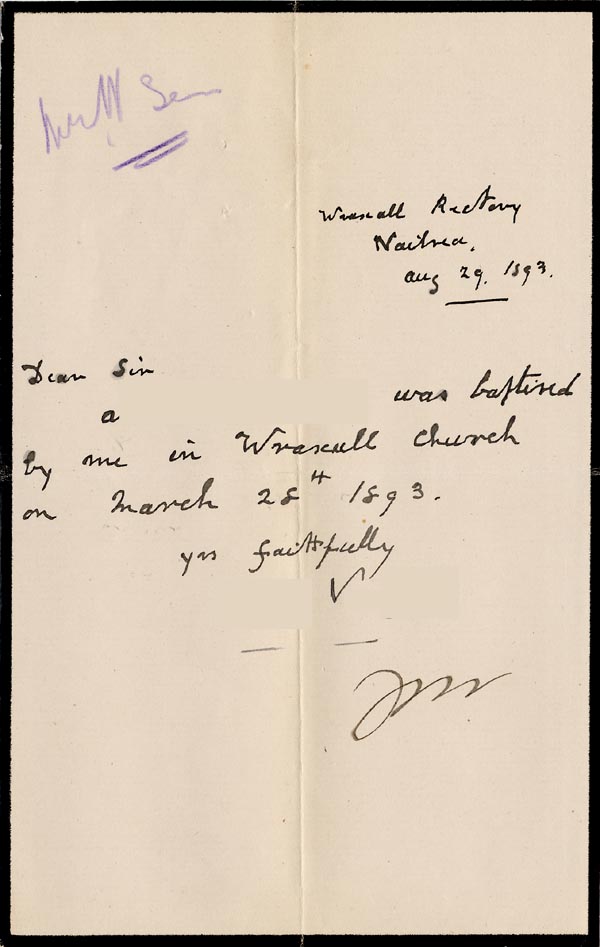 Wraxall Rectory
Nailsea.
Aug 29. 1893.
Dear Sir
was baptised
a
by me in Wraxall Church
on March 28th 1893.
yrs faithfully